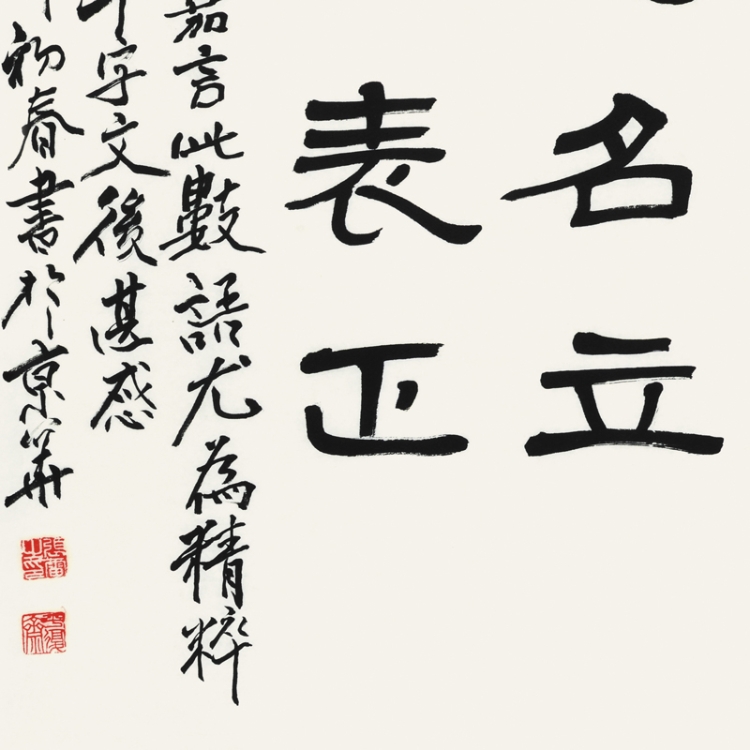 名立
表正
嘉言此數語尤為精粹
千字文後湛感
初春書於京華